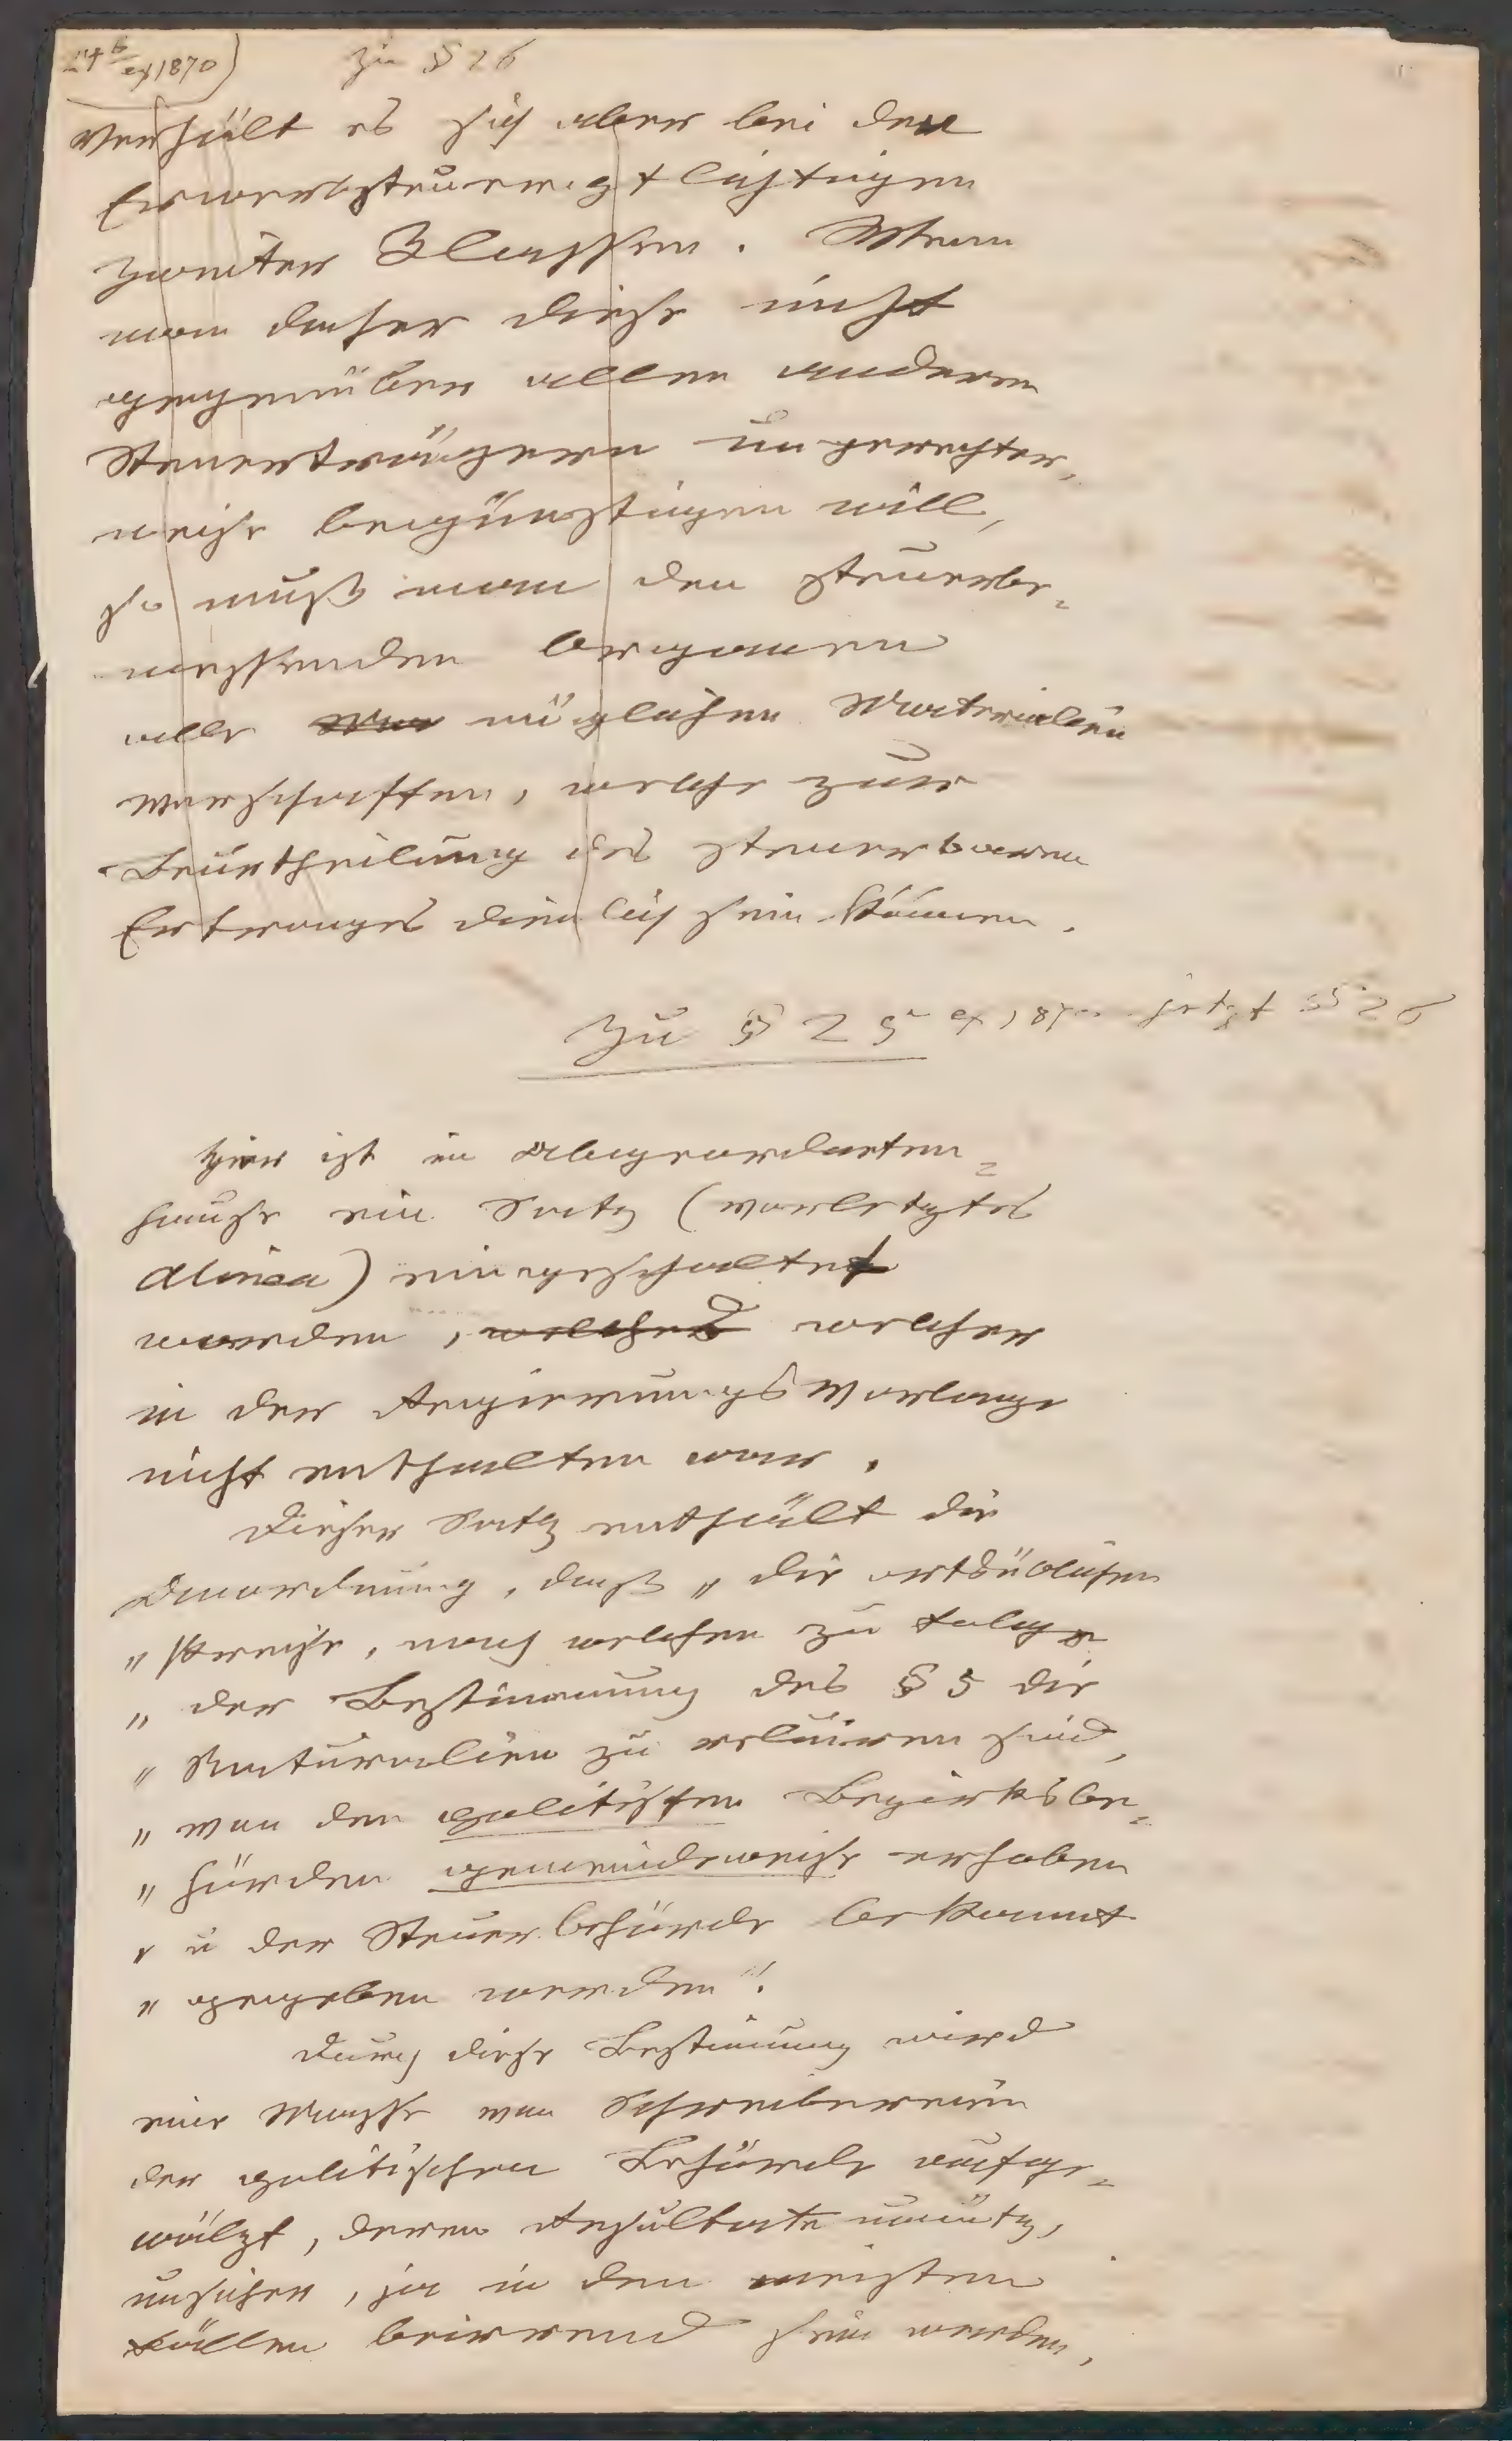 24 b ex 1870) zu § 26
verhält es sich aber bei den
Erwerbsteuerpflichtigen
zweiter Klassen. Wenn
man daher diese nicht
gegenüber allen anderen
Steuerträgern ungerechter-
weise begünstigen will,
so muß man den steuerbe-
messenden Organen
alle möglichen Materialien
verschaffen, welche zur
Beurtheilung des steuerbaren
Ertrages dienlich sein können.
Zu § 25 ex 1870 jetzt § 26
Hier ist im Abgeordneten-
hause ein Satz (vorletztes
Alinea) eingeschaltet
worden, welches welcher
in der Regierungsvorlage
nicht enthalten war.
Dieser Satz enthält die
Anordnung, daß „die ortsüblichen
„Preise, nach welchen zu folge
„der Bestimmung des § 5 die
„Naturalien zu reluiren sind,
„von den politischen Bezirksbe-
„hörden gemeindeweise erhoben
„u der Steuerbehörde bekannt
„gegeben werden".
Durch diese Bestimung wird
eine Masse von Schreibereien
der politischen Behörde aufge-
wälzt, deren Resultate unnütz,
unsicher, ja in den meisten
Fällen beirrend sein werden,